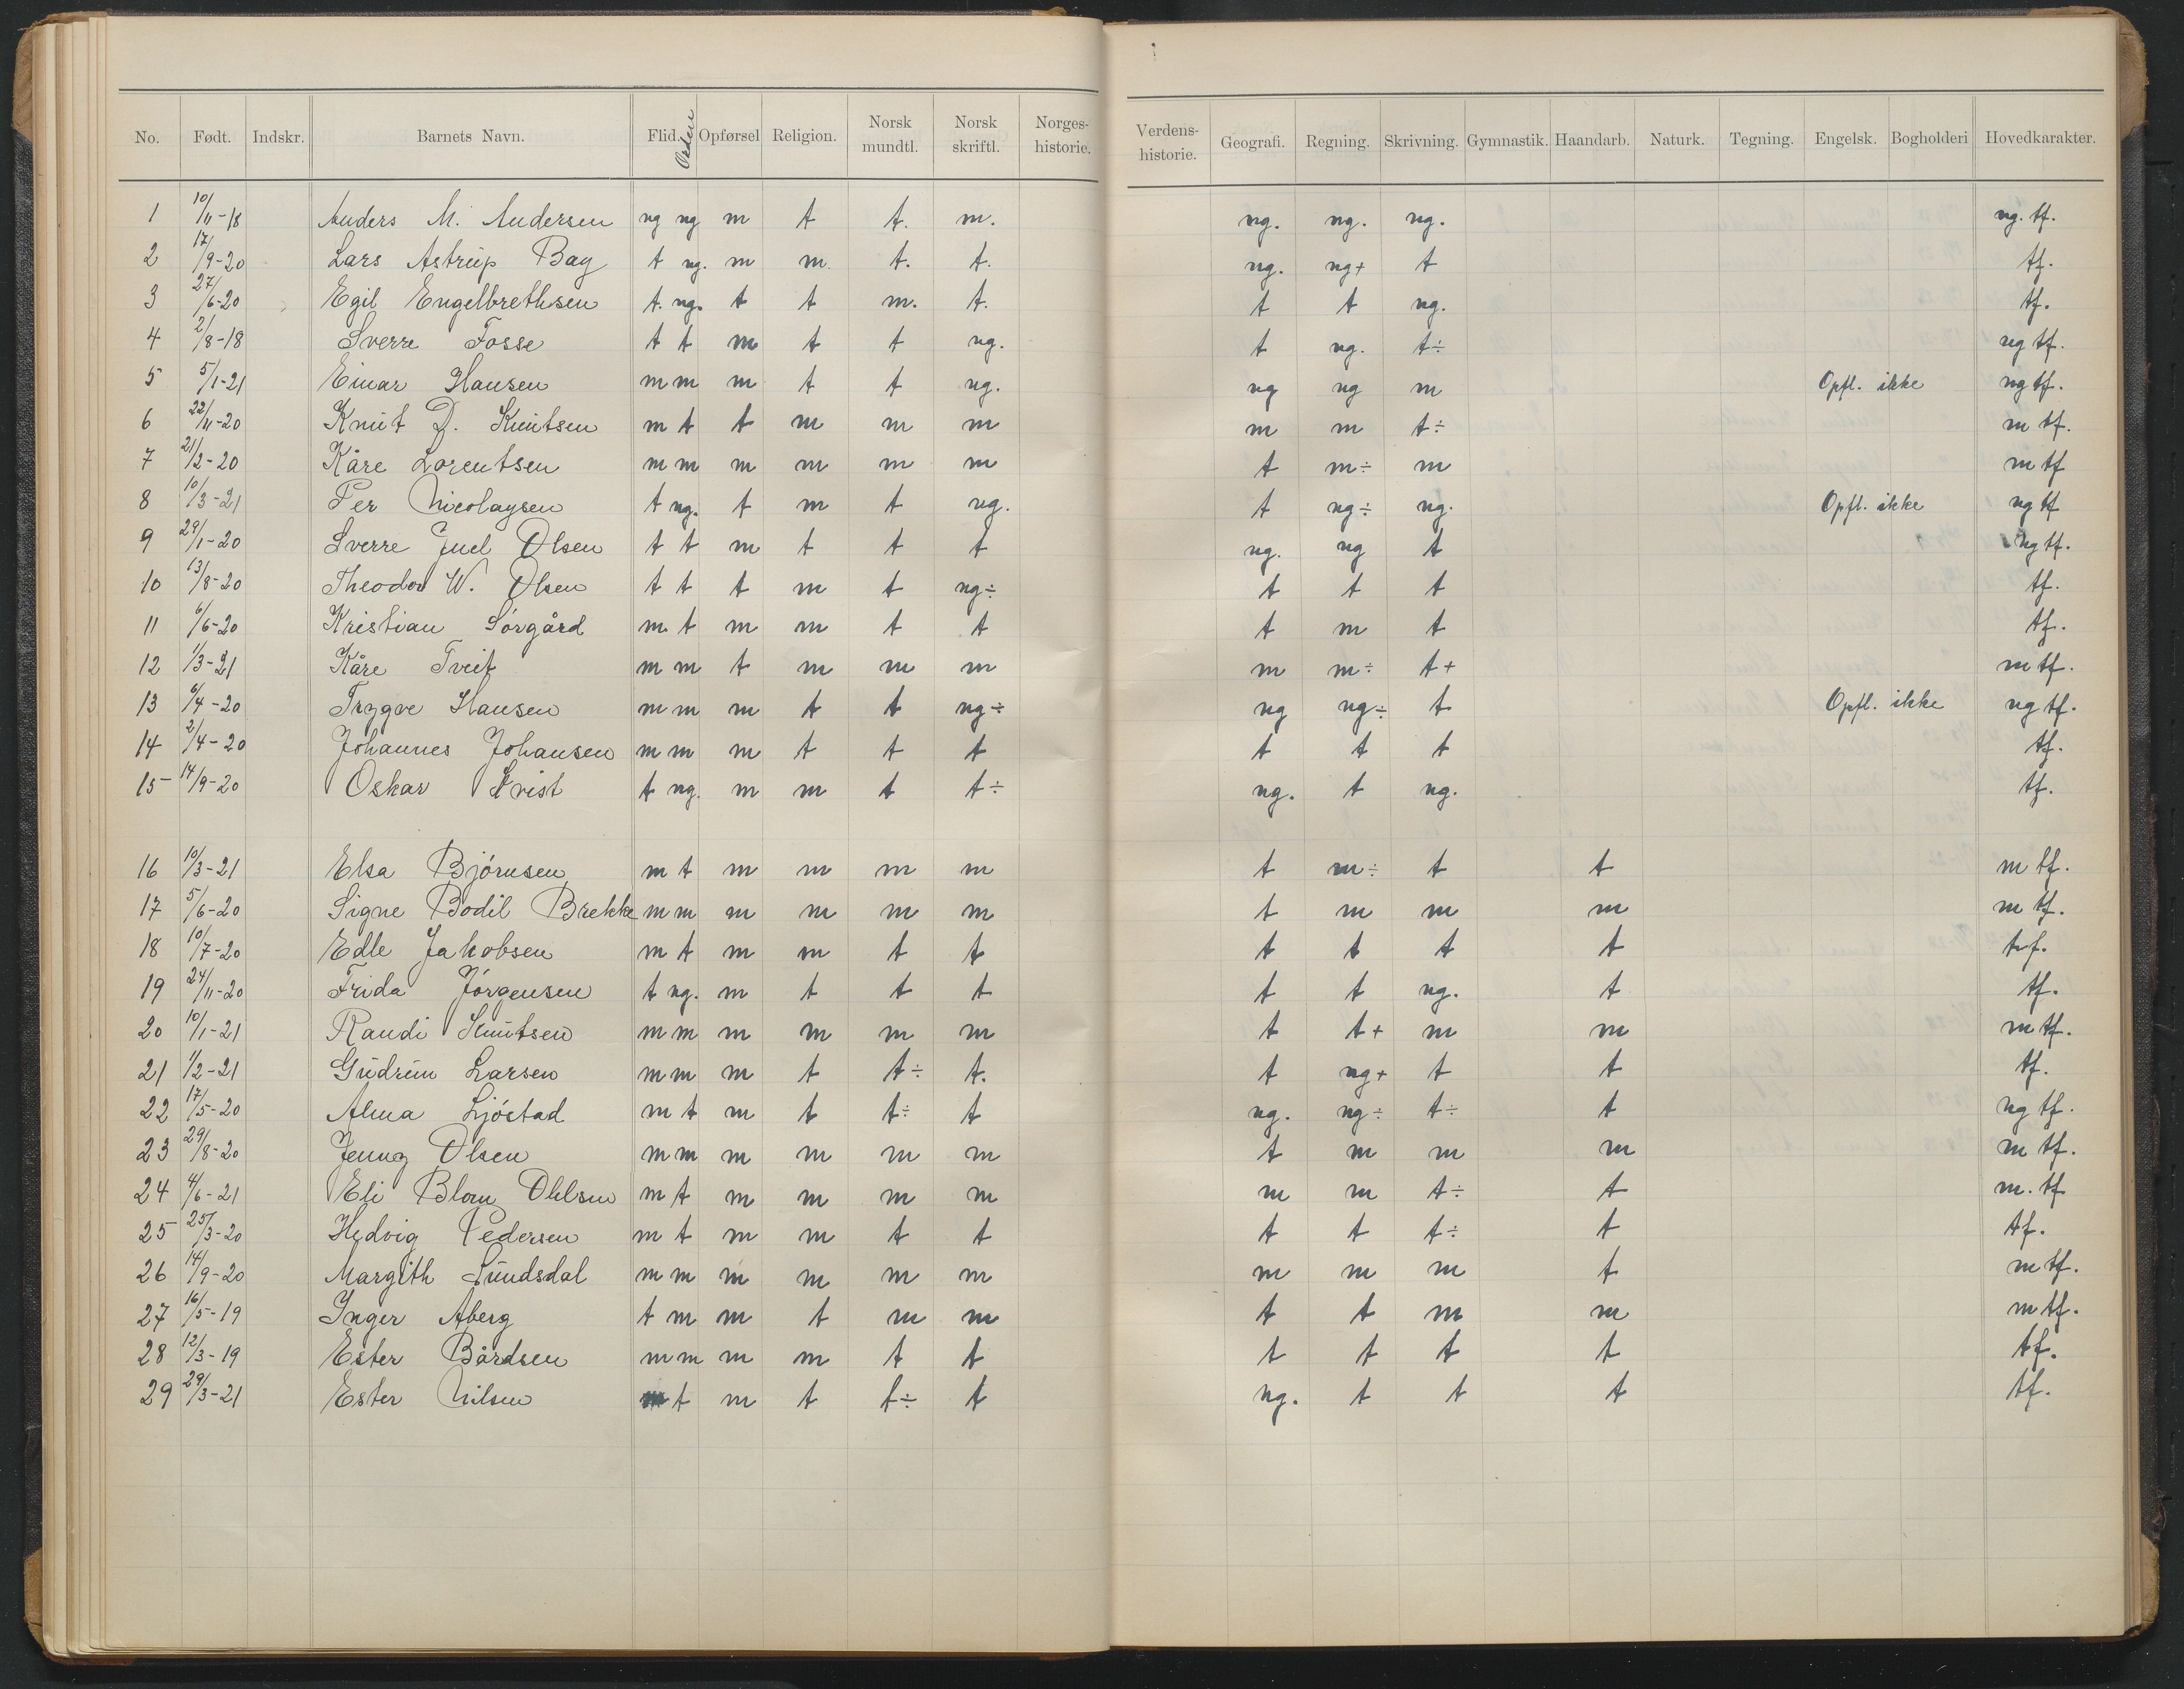 No. Født. Indskr. Barnets Navn. Flid. Orden Opførsel Religion. Norsk mundtl. Norsk skriftl. Norges-historie. Verdens-historie. Geografi. Regning. Skrivning. Gymnastik. Haandarb. Naturk. Tegning. Engelsk. Bogholderi Hovedkarakter.
1 10/11-18 Anders M. Andersen ng ng m t t. m. ng. ng. ng. ng. tf.
2 17/9-20 Lars Astrup Bay t ng. m m. t. t. ng. ng+ t tf.
3 27/6-20 Egil Engelbrethsen t. ng. t t m. t. t t ng. tf.
4 2/8-18 Sverre Fosse t t m t t ng. t ng. t÷ ng tf.
5 5/1-21 Einar Hansen m m m t t ng. ng ng m Opfl. ikke ng tf.
6 22/11-20 Knut D. Knutsen m t t m m m m m t÷ m tf.
7 21/2-20 Kåre Lorentsen m m m m m m t m÷ m m tf
8 10/3-21 Per Nicolaysen t ng. t m t ng. t ng÷ ng. Opfl. ikke ng tf
9 29/1-20 Sverre Juel Olsen t t m t t t ng. ng t ng tf.
10 13/8-20 Theodor W. Olsen t t t m t ng÷ t t t tf.
11 6/6-20 Kristian Sørgård m t m m t t t m t tf.
12 1/3-21 Kåre Tveit m m t m m m m m÷ t+ m tf.
13 6/4-20 Trygve Hansen m m m t t ng÷ ng ng÷ t Opfl. ikke ng tf.
14 2/4-20 Johannes Johansen m m m t t t t t t tf.
15 14/9-20 Oskar Kvist t ng. m m t t÷ ng. t ng. tf.
16 10/3-21 Elsa Bjørnsen m t m m m m t m÷ t t m tf.
17 5/6-20 Signe Bodil Brekke m m m m m m t m m m m tf.
18 10/7-20 Edle Jakobsen m t m m t t t t t t tf.
19 24/11-20 Frida Jørgensen t ng. m t t t t t ng. t tf.
20 10/1-21 Randi Knutsen m m m m m m t t+ m m m tf.
21 1/2-21 Gudrun Larsen m m m t t÷ t. t ng+ t t tf.
22 17/5-20 Alma Ljøstad m t m t t÷ t ng. ng÷ t÷ t ng tf.
23 29/8-20 Jenny Olsen m m m m m m t m m m m tf.
24 4/6-21 Eli Blom Ohlsen m t m m m m m m t÷ t m. tf
25 25/3-20 Hedvig Pedersen m t m m t t t t t÷ t tf.
26 14/9-20 Margith Sundsdal m m m m m m m m m t m tf.
27 16/5-19 Inger Aberg t m m t m m t t m m m tf.
28 12/3-19 Ester Bårdsen m m m m t t t t t t tf.
29 29/3-21 Ester Nilsen t m t t÷ t ng. t t t tf.